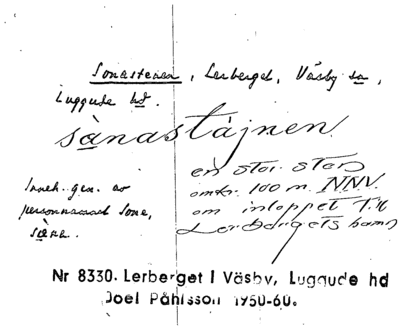 Sonastenen, Lerberget, Väsby sn,
Luggude hd.
sànastàjnen
en stor sten
omkr. 100 m. NNV.
om inloppet till
Lerbärgets hamn
Inneh. gen. av
personnamnet Sone,
Nr 8330. Lerberget i Väsby, Luggude hd
Joel Påhlsson 1950-60.